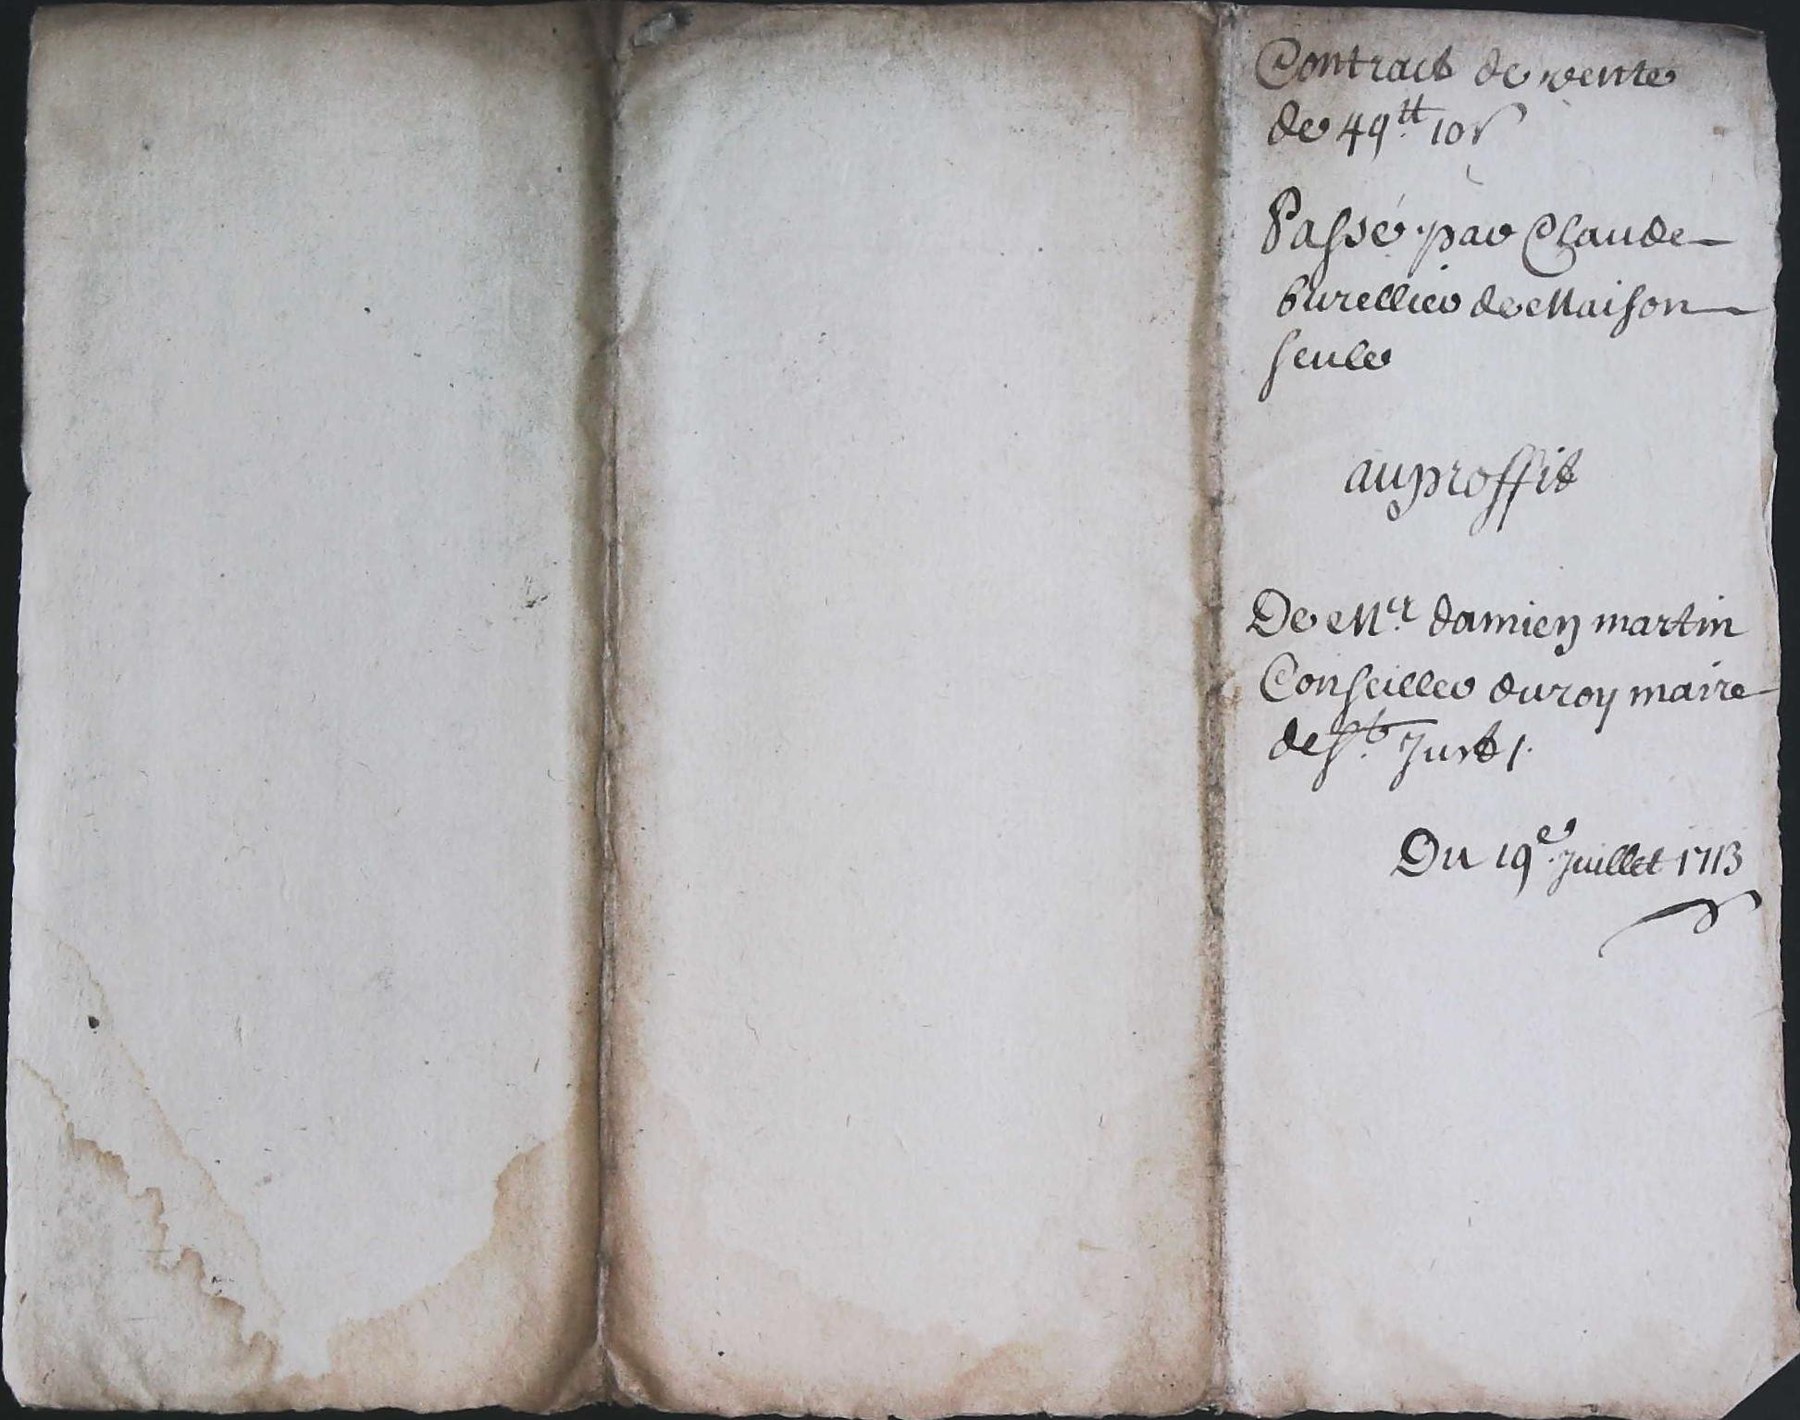 Contract de vente
de 49tt 10s
Passé par Claude
burellier de Maison
seule
au proffit
De Mer. damien martin
Conseiller du roy maire
de St. Just /.
Du 19e Juillet 1713